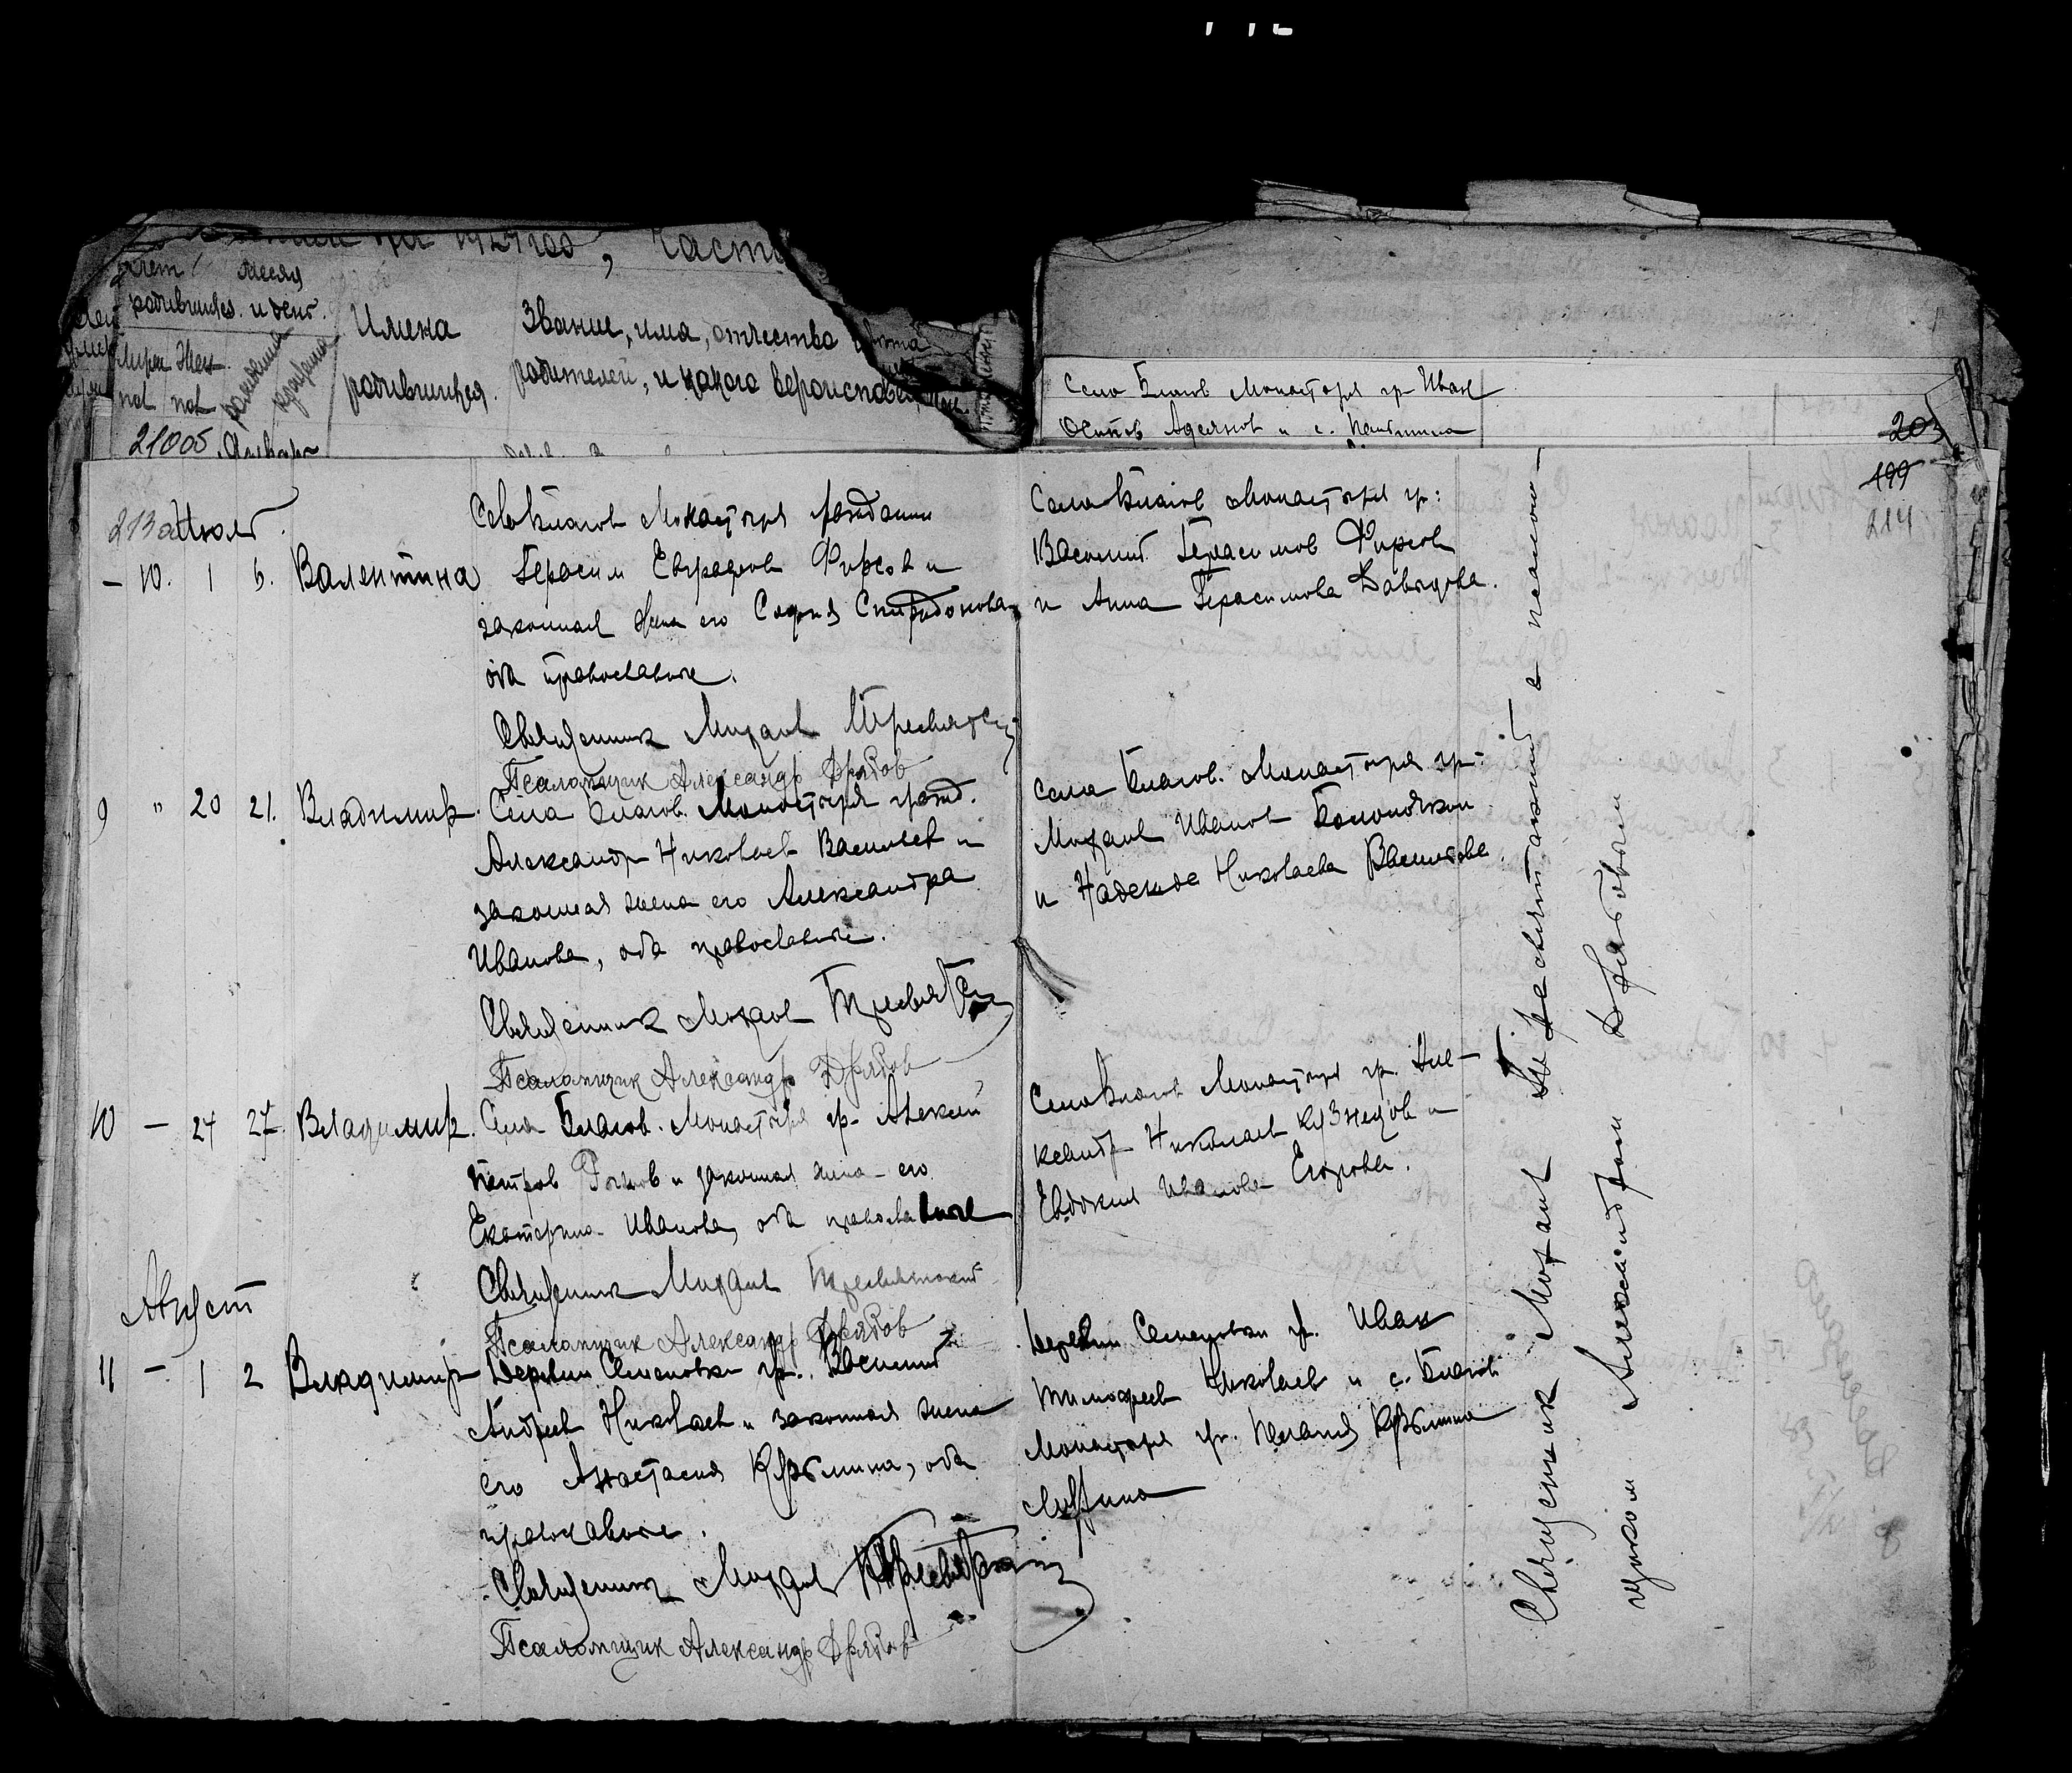 на 1921 год, часть
счет
Месяц
родившихся. и день.
рождения
крещения
Имена
родившихся.
Звание, имя, отчество
родителей, и какого вероисповед
Муж Жен
пол пол
210об
Село Благов Монастыря гр Иван
Осипов и с.
203
199
214
213об Июль.
– 10. 1 6. Валентина
Села Благов Монастыря граждан
Герасим Евграфов Фирсов и
законная жена его София Спиридонова
оба православные.
Священник Михаил Тресвятский
Псаломщик Александр Дрябов
Села Благов Монастыря гр:
Василий Герасимов Фирсов
и Анна Герасимова Давыдова.
9 " 20 21. Владимир.
Села Благов. Монастыря гражд.
Александр Николаев Васильев и
законная жена его Александра
Иванова, оба православные.
Священник Михаил Тресвятский
Псаломщик Александр Дрябов
Села Благов. Монастыря гр:
Михаил Иванов
и Надежда Николаева Васильева.
10 – 24 27. Владимир.
Села Благов. Монастыря гр. Алексей
Петров и законная жена его
Екатерина Иванова, оба православные
Священник Михаил Тресвятский
Псаломщик Александр Дрябов
Села Благов Монастыря гр. Але-
ксандр Николаев Кузнецов и
Евдокия Иванова Егорова.
Август
11 – 1 2 Владимир
Деревни Семеновки гр. Василий
Андреев Николаев и законная жена
его Анастасия Кузьмина, оба
православные.
Священник Михаил Тресвятский
Псаломщик Александр Дрябов
Деревни Семеновки гр. Иван
Тимофеев Николаев и с. Благов
Монастыря гр. Пелагия Кузьмина
Священник Михаил Тресвятский с псалом-
щиком Александром Дрябовым